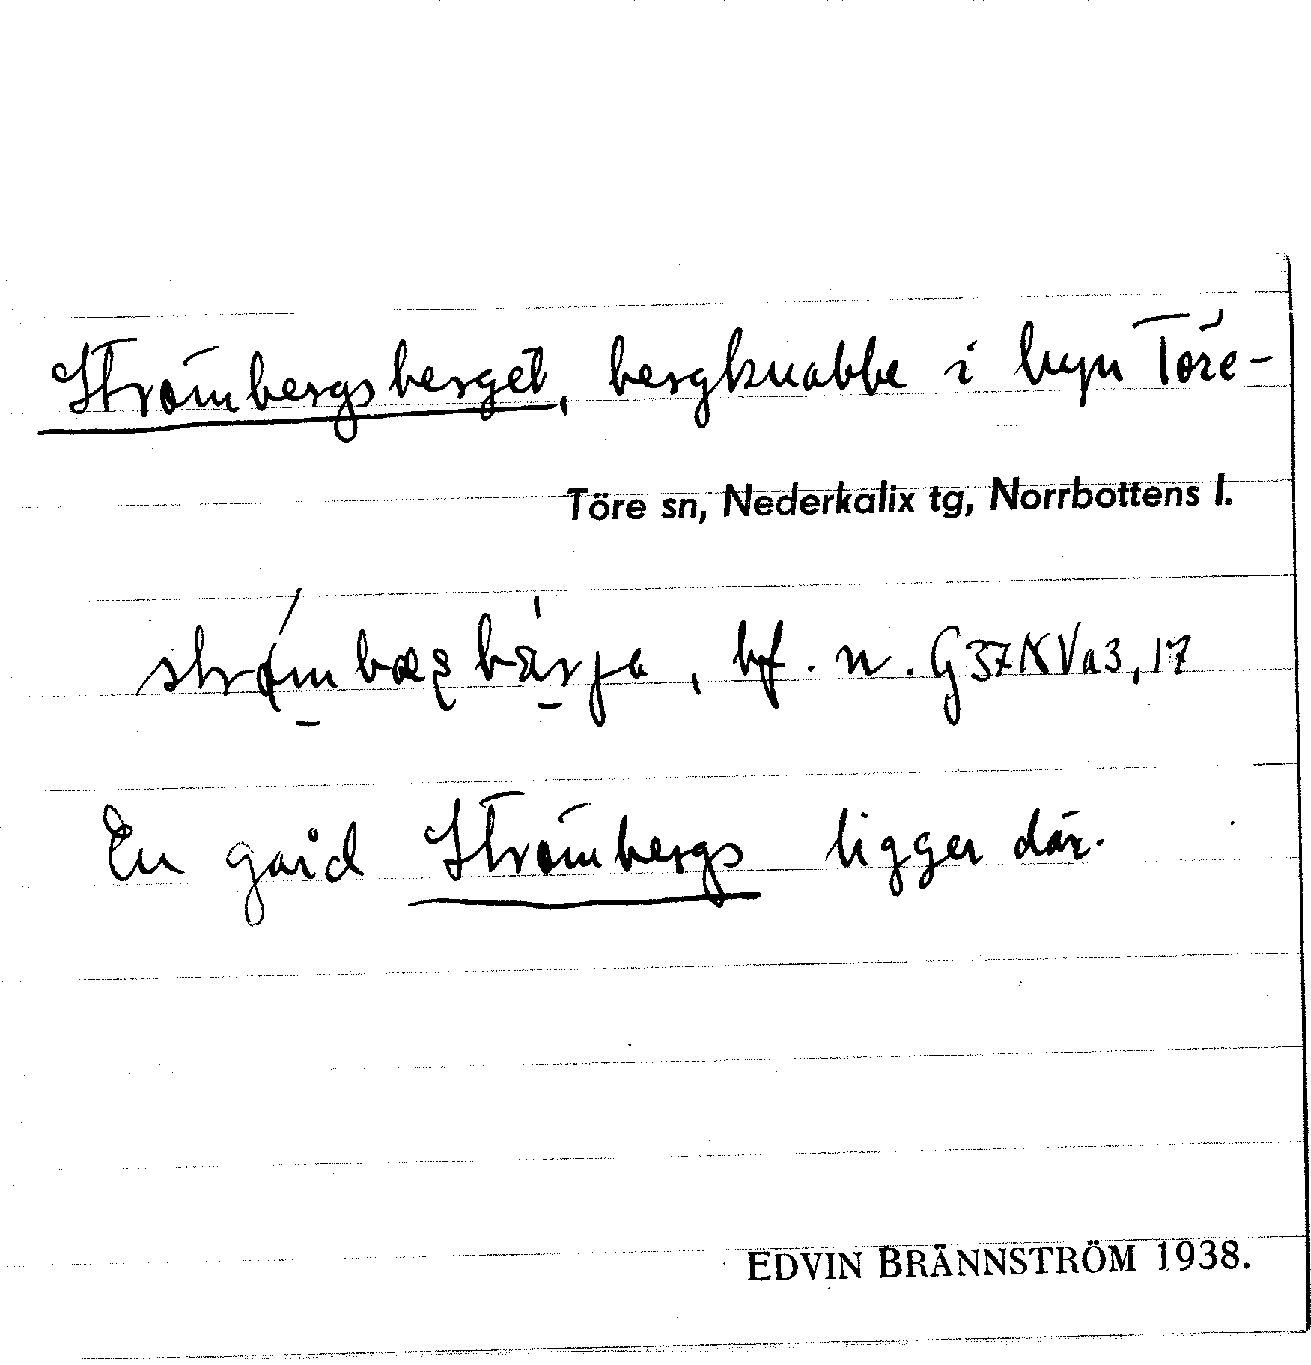 Strömbergsberget, bergknabbe i byn Töre-
Töre sn, Nederkalix tg, Norrbottens l.
bf. n.
En gård Strömbergs ligger där.
EDVIN BRÄNNSTRÖM 1938.